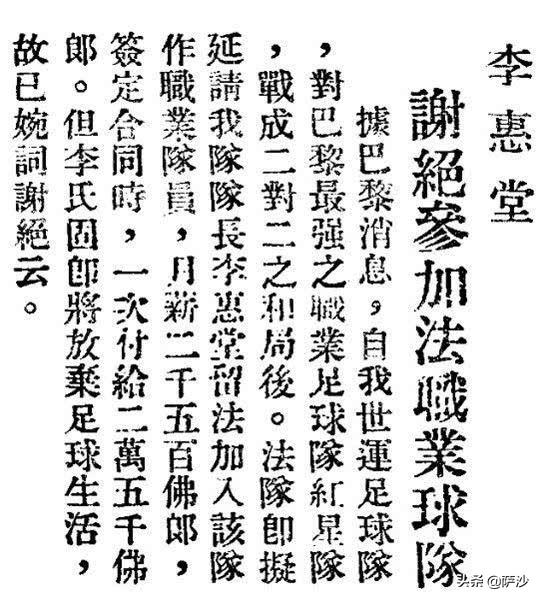 李惠堂
謝絕參加法職業球隊
據巴黎消息，自我世運足球隊
，對巴黎最强之職業足球隊紅星隊
，戰成二對二之和局後。法隊卽擬
延請我隊隊長李惠堂留法加入該隊
作職業隊員，月薪二千五百佛郎，
簽定合同時，一次付給二萬五千佛
郎。但李氏因卽將放棄足球生活，
故已婉詞謝絕云。
头条 @萨沙